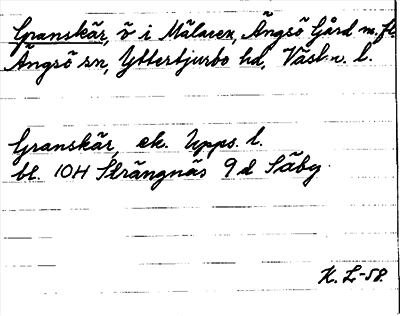 Granskär, ö i Mälaren, Ängsö Gård m.fl.
Ängsö sn, Yttertjurbo hd, Västm. l.
Granskär, ek. Upps. l.
bl. 10H Strängnäs 9 d Säby
K. L-58.